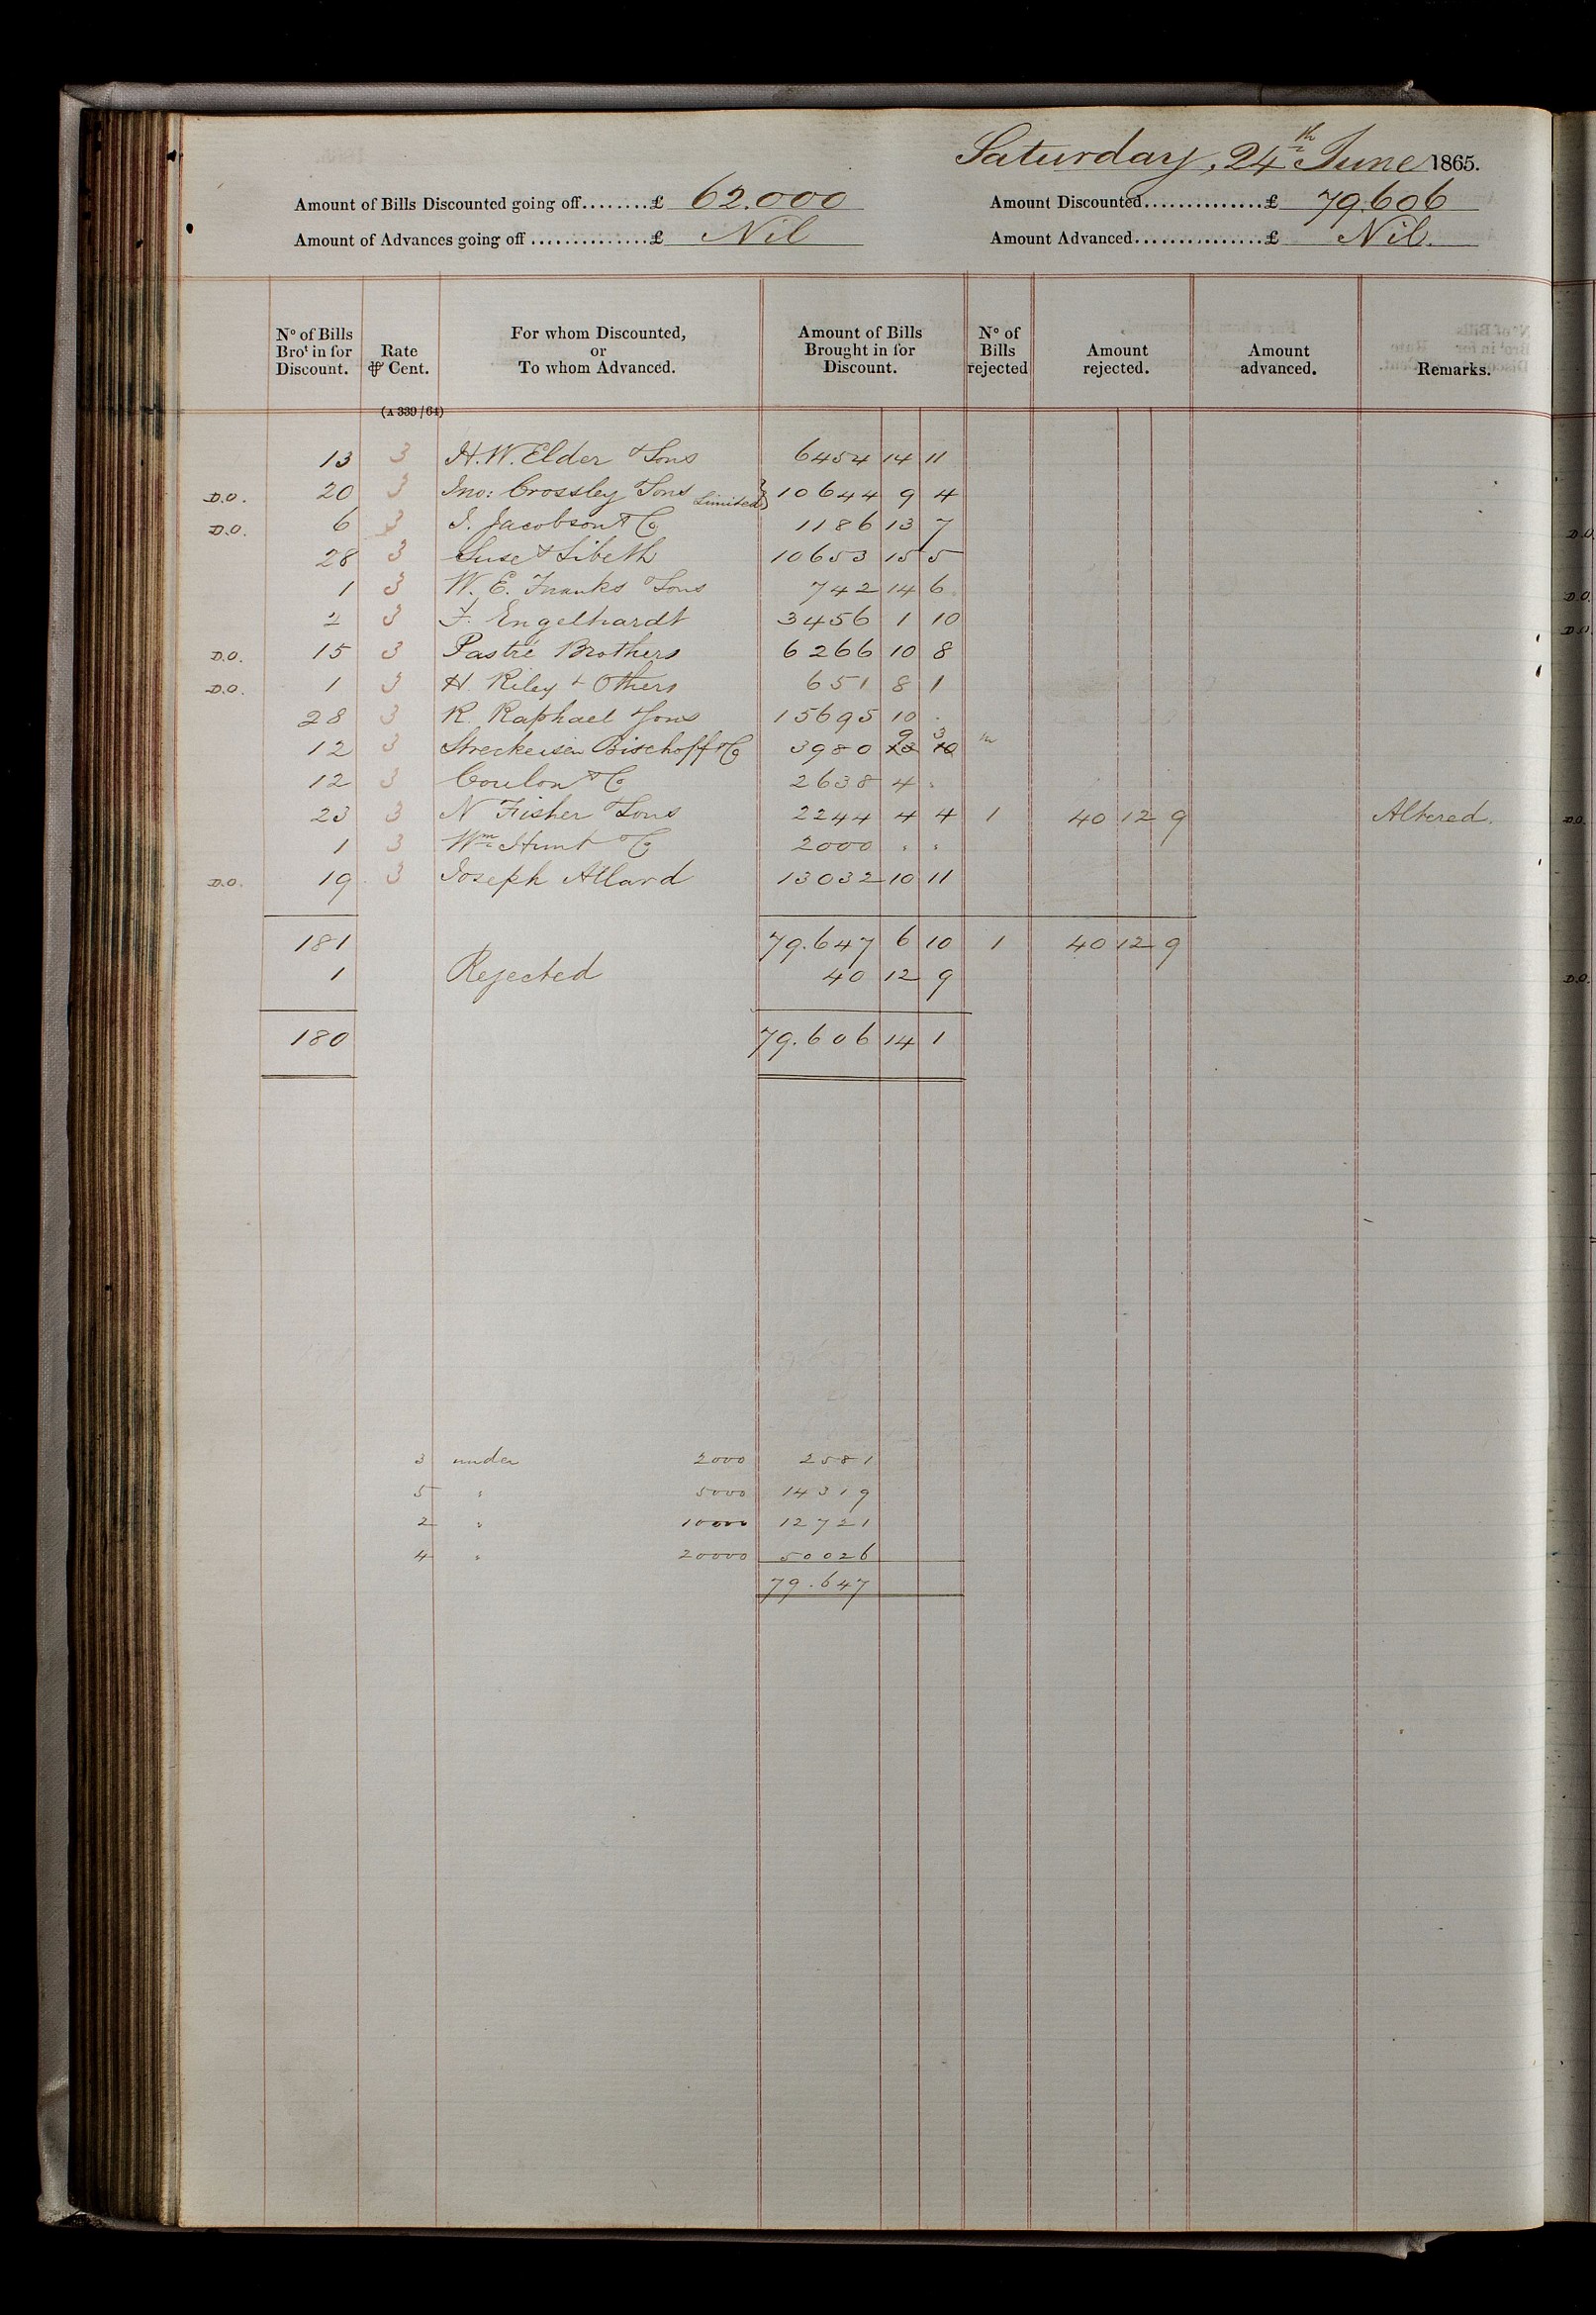 Saturday, 24th June 1865.
Amount of Bills Discounted going off........£ 62.000 Amount Discounted..............£ 79.606
Amount of Advances going off..............£ Nil Amount Advanced................£ Nil.
No of Bills Brot in for Discount. Rate ⅌ Cent. For whom Discounted, or To whom Advanced. Amount of Bills Brought in for Discount. No of Bills rejected Amount rejected. Amount advanced. Remarks.
(A 339/64)
13 3 H. W. Elder & Sons 6454 14 11
D.O. 20 3 Jno: Crossley & Sons Limited } 10644 9 4
D.O. 6 3 I. Jacobson & Co 1186 13 7
28 3 Suse & Sibeth 10653 15 5
1 3 W. E. Franks & Sons 742 14 6
2 3 F. Engelhardt 3456 1 10
D.O. 15 3 Pastré Brothers 6266 10 8
D.O. 1 3 H. Riley & Others 651 8 1
28 3 R. Raphael & Sons 15695 10 .
9 3
12 3 Streckeisen Bischoff & Co 3980 13 10
12 3 Coulon & Co 2638 4 .
23 3 N Fisher & Sons 2244 4 4 1 40 12 9 Altered.
1 3 Wm Hunt & Co 2000 . .
D.O. 19 3 Joseph Allard 13032 10 11
181 79.647 6 10 1 40 12 9
1 Rejected 40 12 9
180 79.606 14 1
3 under 2000 2581
5 " 5000 14319
2 " 10000 12721
4 " 20000 50026
79.647
D.O.
D.O.
D.O.
D.O.
D.O.